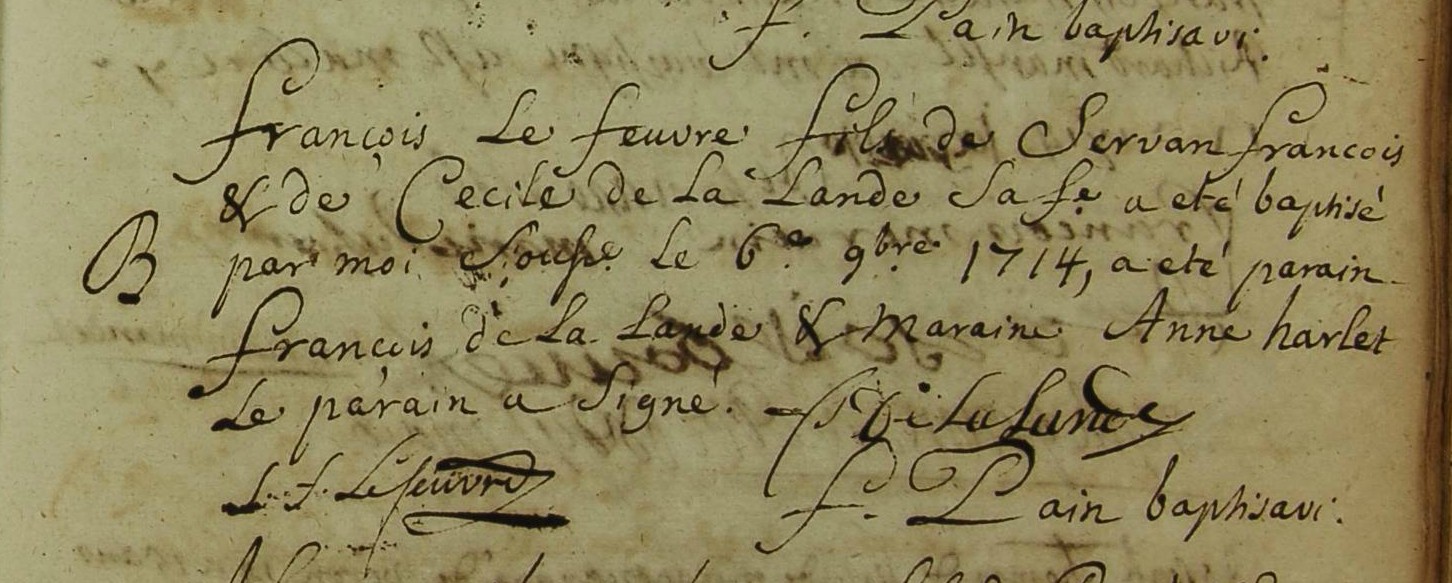 f. Pain baptisavi.
françois Le feuvre fils de Servan francois
& de Cecile de La Lande Sa fe. a eté baptisé
B par moi Soussé. Le 6.e 9bre 1714, a eté parain
françois de La Lande & Maraine Anne harlet
Le parain a Signé. f De La Lande
S. f. Lefeuvre f. Pain baptisavi.